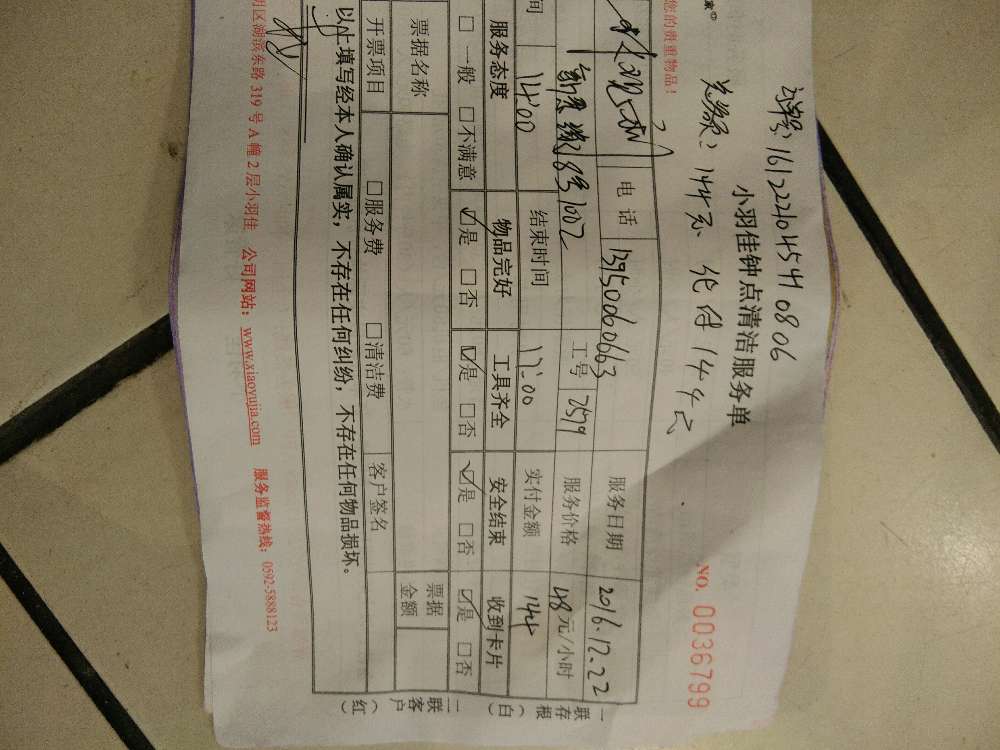 家®
您的贵重物品！
单号：161221045410806
小羽佳钟点清洁服务单
总额：144元 化付144元
NO. 0036799
电话 13950060663 服务日期 2016.12.22
8号1002 工号 2579 服务价格 48元/小时
间 14:00 结束时间 17:00 实付金额 144
服务态度 物品完好 工具齐全 安全结束 收到卡片
□一般 □不满意 ☑是 □否 ☑是 □否 ☑是 □否 ☑是 □否
票据名称 票据金额
开票项目 □服务费 □清洁费 客户签名
以上填写经本人确认属实，不存在任何纠纷，不存在任何物品损坏。
一联存根（白）
二联客户（红）
明区湖滨东路319号A幢2层小羽佳 公司网站：www.xiaoyujia.com 服务监督热线：0592-5888123